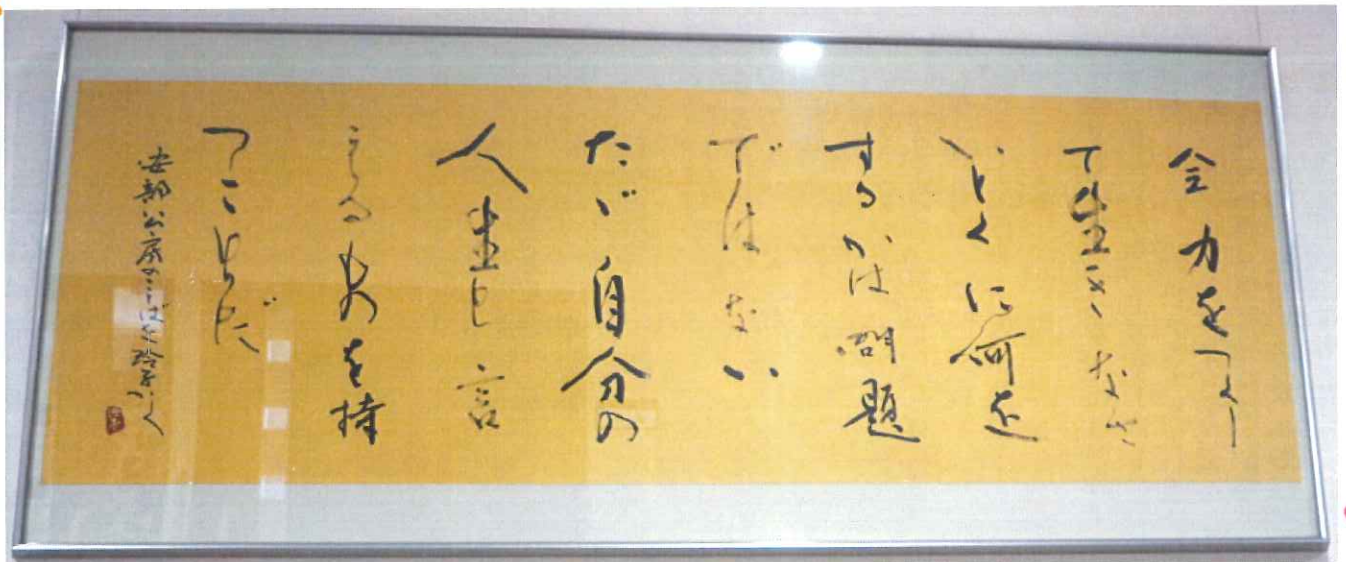 全力を尽し
て生きなさ
いとくに何を
するかは問題
ではない
ただ自分の
人生と言
えるものを持
つことだ
安部公房のことばを 玲子かく